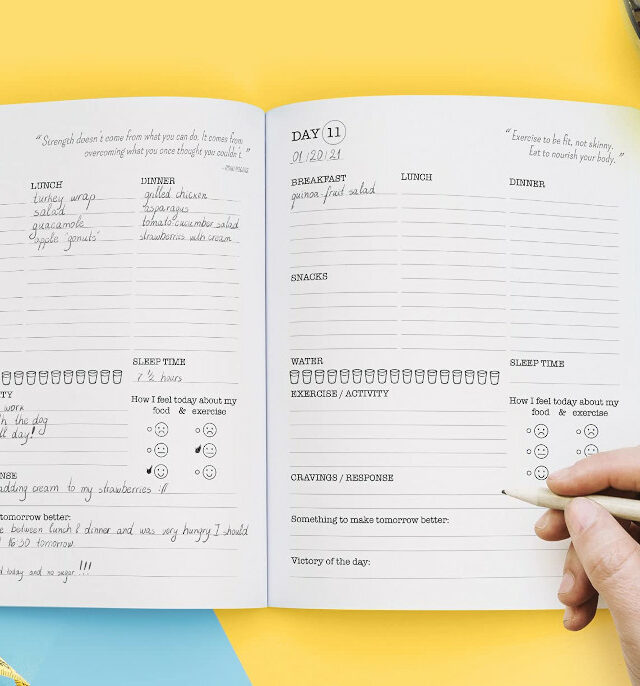 "Strength doesn't come from what you can do. It comes from
overcoming what you once thought you couldn't."
LUNCH
turkey wrap
salad
guacamole
apple "gonuts"
DINNER
grilled chicken
asparagus
tomato-cucumber salad
strawberries with cream
SLEEP TIME
7 1/2 hours
TY
work
th the dog
ll day!
How I feel today about my
food & exercise
NSE
adding cream to my strawberries ://
tomorrow better:
e between lunch & dinner and was very hungry I should
16:30 tomorrow.
d today and no sugar!!!
DAY 11
01/20/21
"Exercise to be fit, not skinny.
Eat to nourish your body."
BREAKFAST
quinoa-fruit salad
LUNCH
DINNER
SNACKS
WATER
SLEEP TIME
EXERCISE / ACTIVITY
How I feel today about my
food & exercise
CRAVINGS / RESPONSE
Something to make tomorrow better:
Victory of the day: